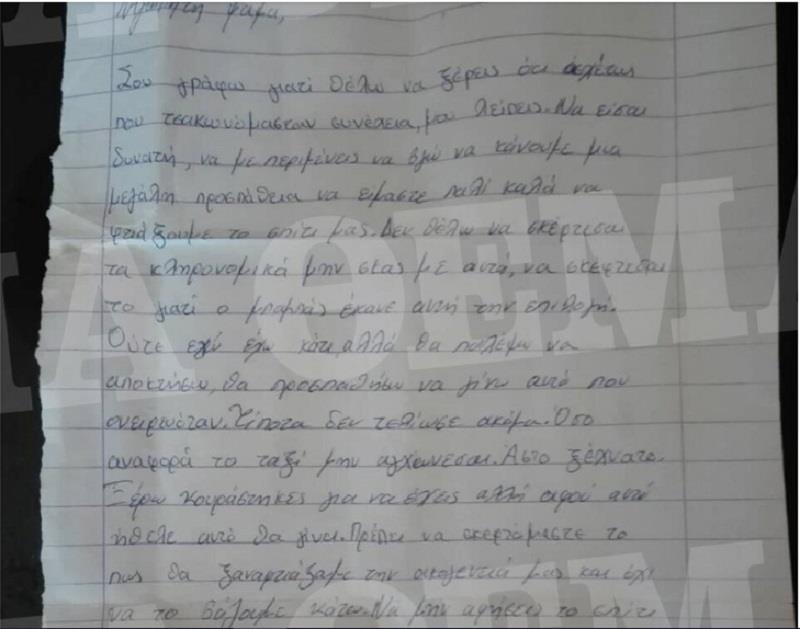 Αγαπητή μαμα,
Σου γράφω γιατί θέλω να ξέρεις ότι άσχέτως
που τσακωνόμασταν συνέχεια, μου λείπεις. Να είσαι
δυνατή, να με περιμένεις να βγω να κάνουμε μια
μεγάλη προσπάθεια να είμαστε παλί καλά να
φτιάξουμε το σπίτι μας. Δεν θέλω να σκέφτεσαι
τα κληρονομικά μην σκας με αυτά, να σκέφτεσαι
το γιατί ο μπαμπάς έκανε αυτή την επιλογή.
Ούτε εγώ έχω κάτι, αλλά θα παλέψω να
αποκτήσω, θα προσπαθήσω να γίνω αυτό που
ονειρευόταν. Τίποτα δεν τελίωσε ακόμα. Όσο
αναφορά το ταξί μην αγχώνεσαι. Άστο ξέχνατο.
Ξέρω κουράστηκες για να έχεις αλλή αφού αυτό
ήθελε αυτό θα γίνει. Πρέπει να σκεφτόμαστε το
πως θα ξαναφτιάξαμε την οικογένειά μας και όχι
να το βάλουμε κάτω. Να μην αφήσεις το σπίτι
ΘΕΜΑ